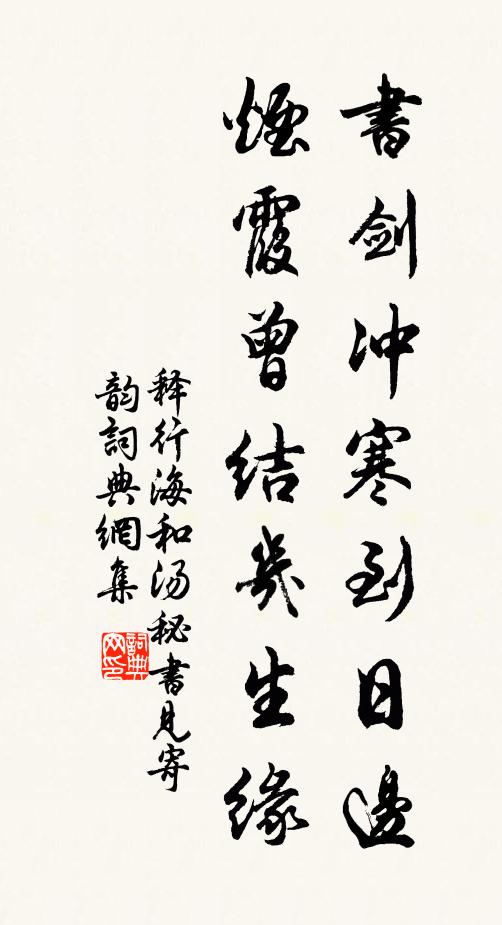 書劍冲寒到日邊
煙霞曾結幾生緣
释行海和汤秘書見寄
韵詞典網集
詞典
网印